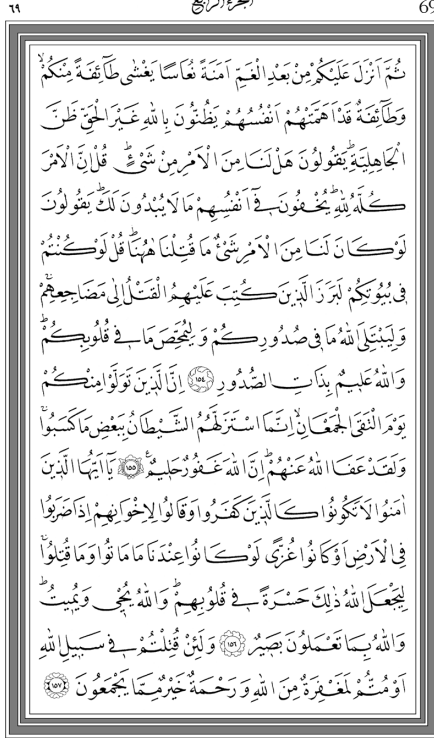 ٦٩ الجزء الرابع 69
ثُمَّ اَنْزَلَ عَلَيْكُمْ مِنْ بَعْدِ الْغَمِّ اَمَنَةً نُعَاسًا يَغْشٰى طَٓائِفَةً مِنْكُمْۙ
وَطَٓائِفَةٌ قَدْ اَهَمَّتْهُمْ اَنْفُسُهُمْ يَظُنُّونَ بِاللّٰهِ غَيْرَ الْحَقِّ ظَنَّ
الْجَاهِلِيَّةِۜ يَقُولُونَ هَلْ لَنَا مِنَ الْاَمْرِ مِنْ شَيْءٍۜ قُلْ اِنَّ الْاَمْرَ
كُلَّهُ لِلّٰهِۜ يُخْفُونَ فٓي اَنْفُسِهِمْ مَا لَا يُبْدُونَ لَكَۜ يَقُولُونَ
لَوْ كَانَ لَنَا مِنَ الْاَمْرِ شَيْءٌ مَا قُتِلْنَا هٰهُنَاۜ قُلْ لَوْ كُنْتُمْ
فِي بُيُوتِكُمْ لَبَرَزَ الَّذِينَ كُتِبَ عَلَيْهِمُ الْقَتْلُ اِلٰى مَضَاجِعِهِمْۚ
وَلِيَبْتَلِيَ اللّٰهُ مَا فِي صُدُورِكُمْ وَلِيُمَحِّصَ مَا فِي قُلُوبِكُمْۜ
وَاللّٰهُ عَلِيمٌ بِذَاتِ الصُّدُورِ ﴿١٥٤﴾ اِنَّ الَّذِينَ تَوَلَّوْا مِنْكُمْ
يَوْمَ الْتَقَى الْجَمْعَانِۙ اِنَّمَا اسْتَزَلَّهُمُ الشَّيْطَانُ بِبَعْضِ مَا كَسَبُواۚ
وَلَقَدْ عَفَا اللّٰهُ عَنْهُمْۜ اِنَّ اللّٰهَ غَفُورٌ حَلِيمٌ۟ ﴿١٥٥﴾ يَٓا اَيُّهَا الَّذِينَ
اٰمَنُوا لَا تَكُونُوا كَالَّذِينَ كَفَرُوا وَقَالُوا لِاِخْوَانِهِمْ اِذَا ضَرَبُوا
فِي الْاَرْضِ اَوْ كَانُوا غُزًّى لَوْ كَانُوا عِنْدَنَا مَا مَاتُوا وَمَا قُتِلُواۚ
لِيَجْعَلَ اللّٰهُ ذٰلِكَ حَسْرَةً فِي قُلُوبِهِمْۜ وَاللّٰهُ يُحْيِي وَيُمِيتُۜ
وَاللّٰهُ بِمَا تَعْمَلُونَ بَصِيرٌ ﴿١٥٦﴾ وَلَئِنْ قُتِلْتُمْ فِي سَبِيلِ اللّٰهِ
اَوْ مُتُّمْ لَمَغْفِرَةٌ مِنَ اللّٰهِ وَرَحْمَةٌ خَيْرٌ مِمَّا يَجْمَعُونَ ﴿١٥٧﴾